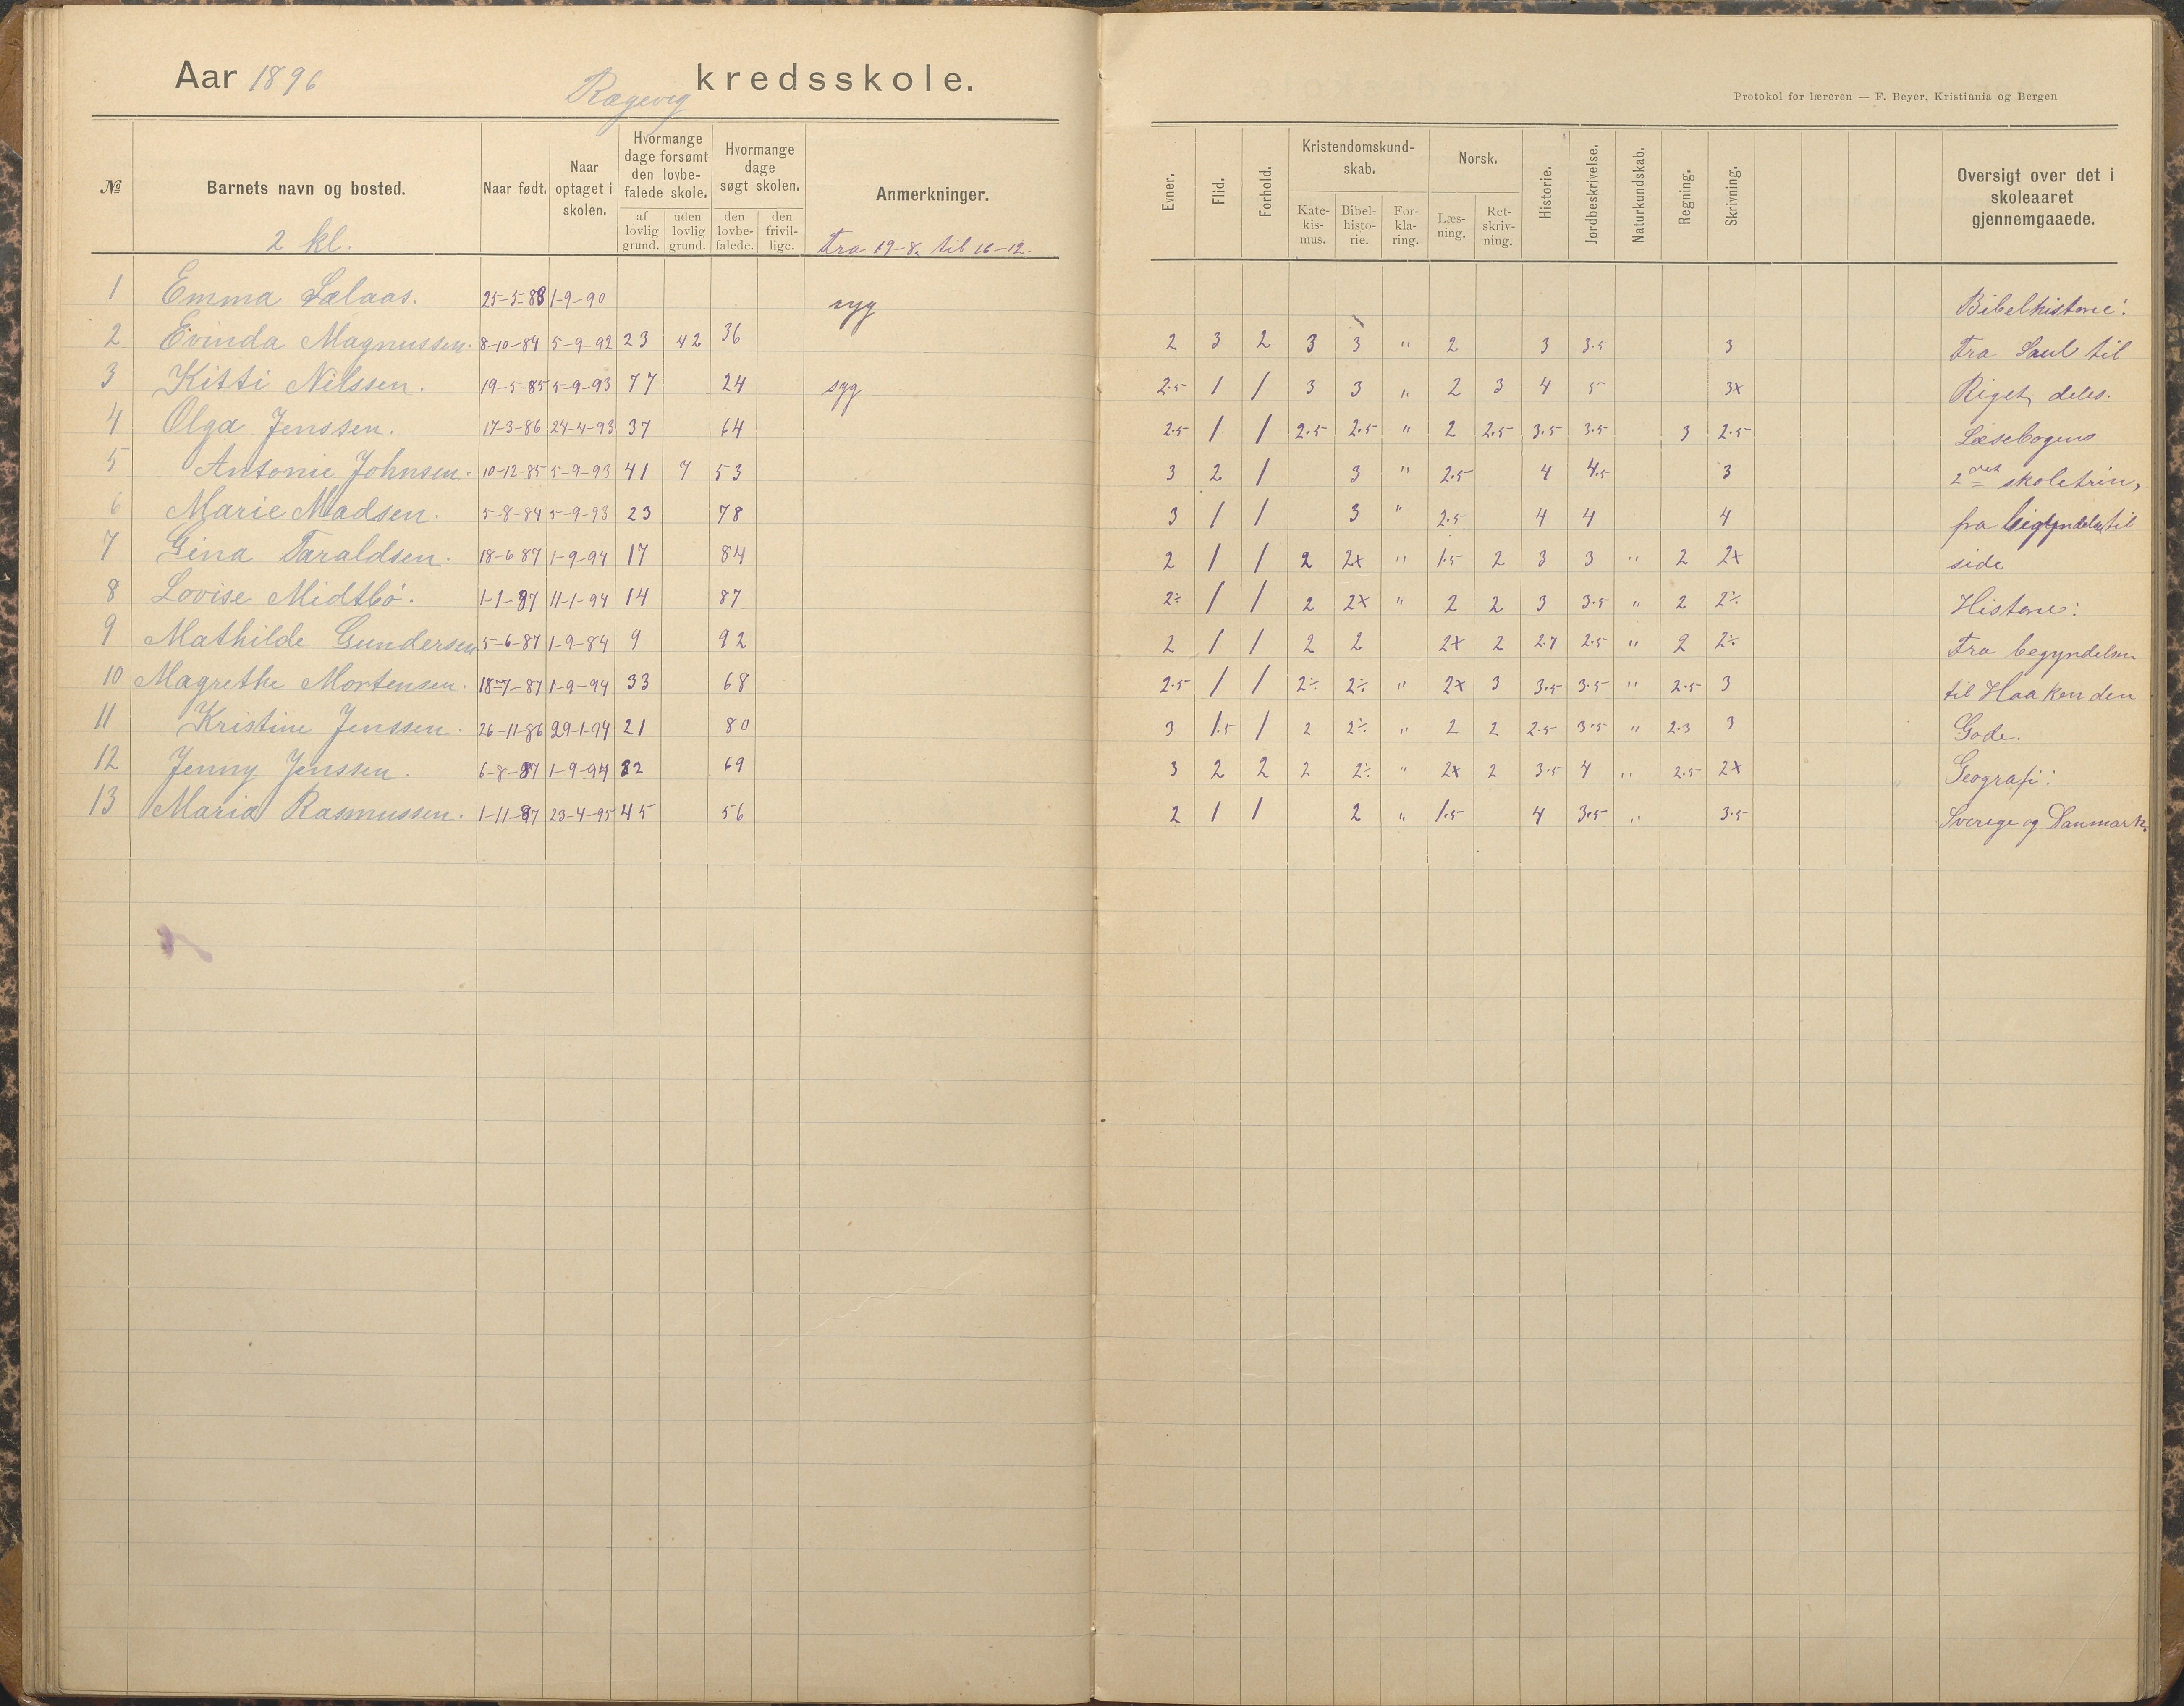 Aar 1896 Ragevig kredsskole.
Protokol for læreren — F. Beyer, Kristiania og Bergen
№ Barnets navn og bosted. Naar født. Naar optaget i skolen. Hvormange dage forsømt den lovbefalede skole. af lovlig grund. uden lovlig grund. Hvormange dage søgt skolen. den lovbefalede. den frivillige. Anmerkninger.
Evner. Flid. Forhold. Kristendomskundskab. Katekismus. Bibelhistorie. Forklaring. Norsk. Læsning. Retskrivning. Historie. Jordbeskrivelse. Naturkundskab. Regning. Skrivning. Oversigt over det i skoleaaret gjennemgaaede.
2 kl. Fra 19-8. til 16-12.
1 Emma Sælaas. 25-5-83 1-9-90 syg Bibelhistorie:
2 Evinda Magnussen. 8-10-84 5-9-92 23 42 36 2 3 2 3 3 " 2 3 3.5 3 Fra Saul til
3 Kitti Nilssen. 19-5-85 5-9-93 77 24 syg 2.5 1 1 3 3 " 2 3 4 5 3x Riget deles.
4 Olga Jenssen. 17-3-86 24-4-93 37 64 2.5 1 1 2.5 2.5 " 2 2.5 3.5 3.5 3 2.5 Læsebogens
5 Antonie Johnsen. 10-12-85 5-9-93 41 7 53 3 2 1 3 " 2.5 4 4.5 3 2det skoletrin,
6 Marie Madsen. 5-8-84 5-9-93 23 78 3 1 1 3 " 2.5 4 4 4 fra begyndelsen til
7 Gina Taraldsen. 18-6 87 1-9-94 17 84 2 1 1 2 2x " 1.5 2 3 3 " 2 2x side
8 Lovise Midtbø. 1-1-87 11-1-94 14 87 2÷ 1 1 2 2x " 2 2 3 3.5 " 2 2÷ Historie:
9 Mathilde Gundersen 5-6-87 1-9-84 9 92 2 1 1 2 2 2x 2 2.7 2.5 " 2 2÷ Fra begyndelsen
10 Magrethe Mortensen. 18-7-87 1-9-94 33 68 2.5 1 1 2÷ 2÷ " 2x 3 3.5 3.5 " 2.5 3 til Haakon den
11 Kristine Jenssen. 26-11-86 29-1-94 21 80 3 1.5 1 2 2÷ " 2 2 2.5 3.5 " 2.3 3 Gode.
12 Jenny Jenssen. 6-8-87 1-9-94 32 69 3 2 2 2 2÷ " 2x 2 3.5 4 " 2.5 2x Geografi:
13 Maria Rasmussen. 1-11-87 23-4-95 45 56 2 1 1 2 " 1.5 4 3.5 " 3.5 Sverige og Danmark.